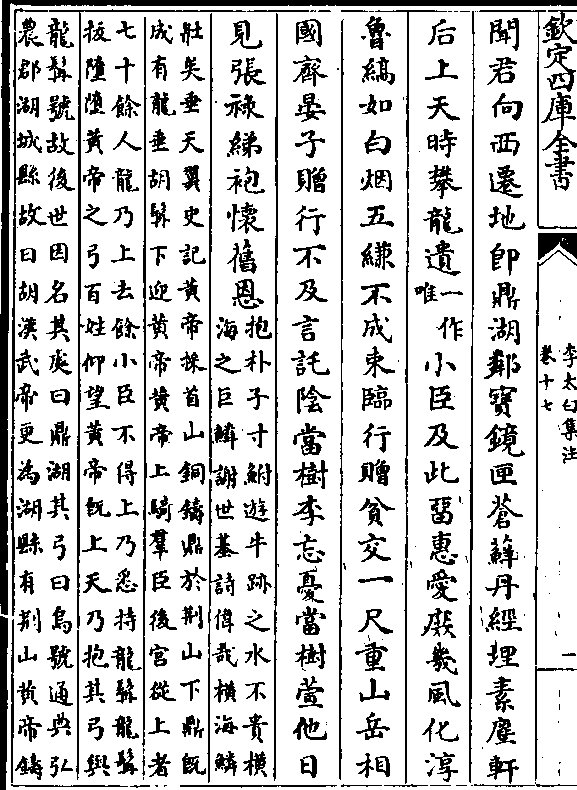 欽定四庫全書
李太白集注
卷十七
聞君向西遷地即鼎湖鄰寶鏡匣蒼蘚丹經埋素塵軒
后上天時攀龍遺一作唯小臣及此留惠愛庶幾風化淳
魯縞如白烟五縑不成束臨行贈貧交一尺重山岳相
國齊晏子贈行不及言託陰當樹李忘憂當樹萱他日
見張祿綈袍懷舊恩
抱朴子寸鮒遊牛跡之水不貴橫
海之巨鱗謝世基詩偉哉橫海鱗
壯矣垂天翼史記黄帝採首山銅鑄鼎於荆山下鼎既
成有龍垂胡髯下迎黄帝黄帝上騎羣臣後宫從上者
七十餘人龍乃上去餘小臣不得上乃悉持龍髯龍髯
拔墮墮黄帝之弓百姓仰望黄帝既上天乃抱其弓與
龍髯號故後世因名其處曰鼎湖其弓曰烏號通典弘
農郡湖城縣故曰胡漢武帝更為湖縣有荆山黄帝鑄